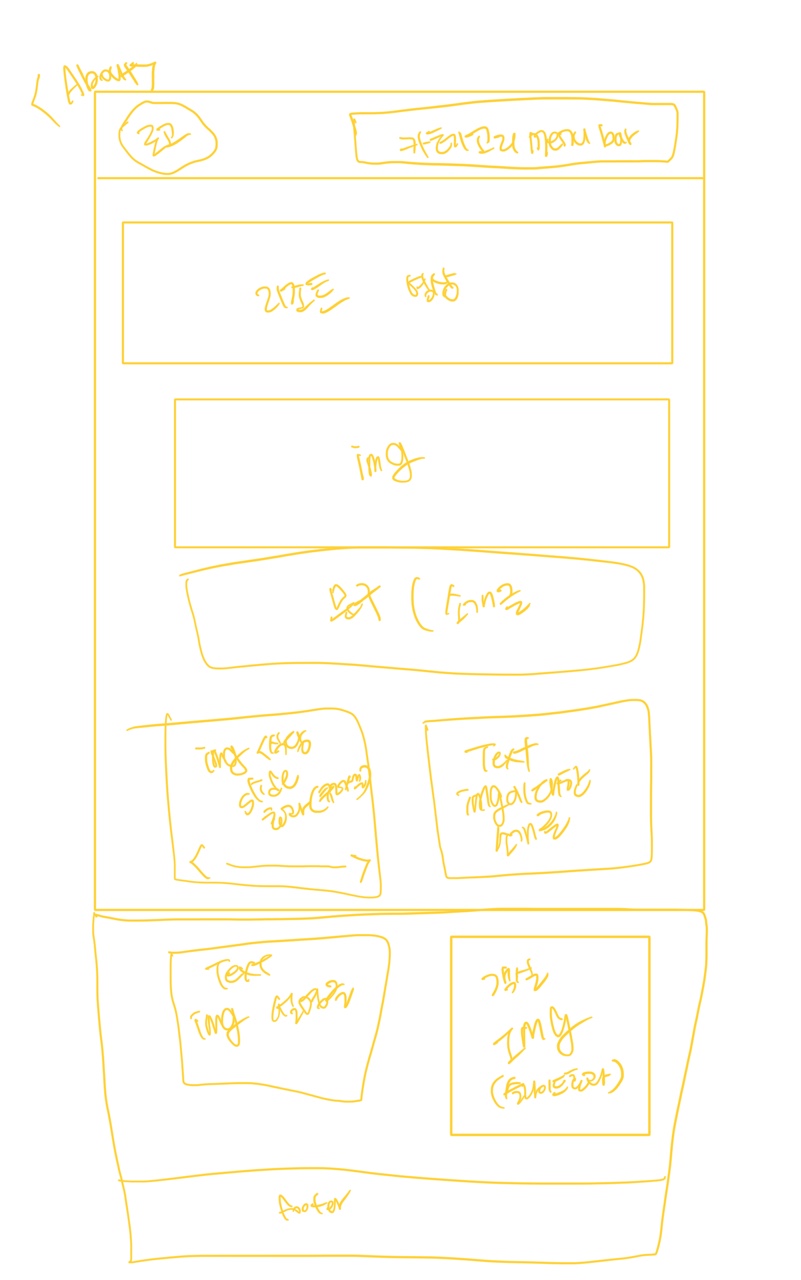 < About
로고
카테고리 menu bar
리조트 영상
img
문구 ( 소개글
img
slide
효과
< >
Text
img에 대한
소개글
Text
img 설명글
객실
IMG
(슬라이드효과)
footer